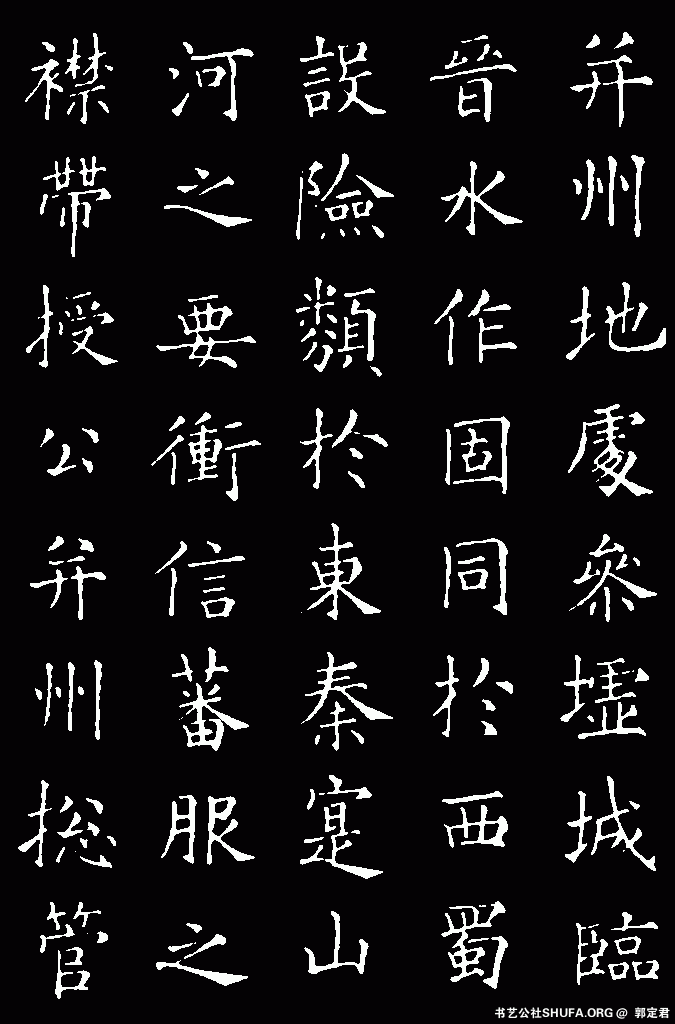 并州地處參墟城臨
晉水作固同於西蜀
設險類於東秦寔山
河之要衝信蕃服之
襟帶授公并州捴管
书艺公社SHUFA.ORG @ 郭定君